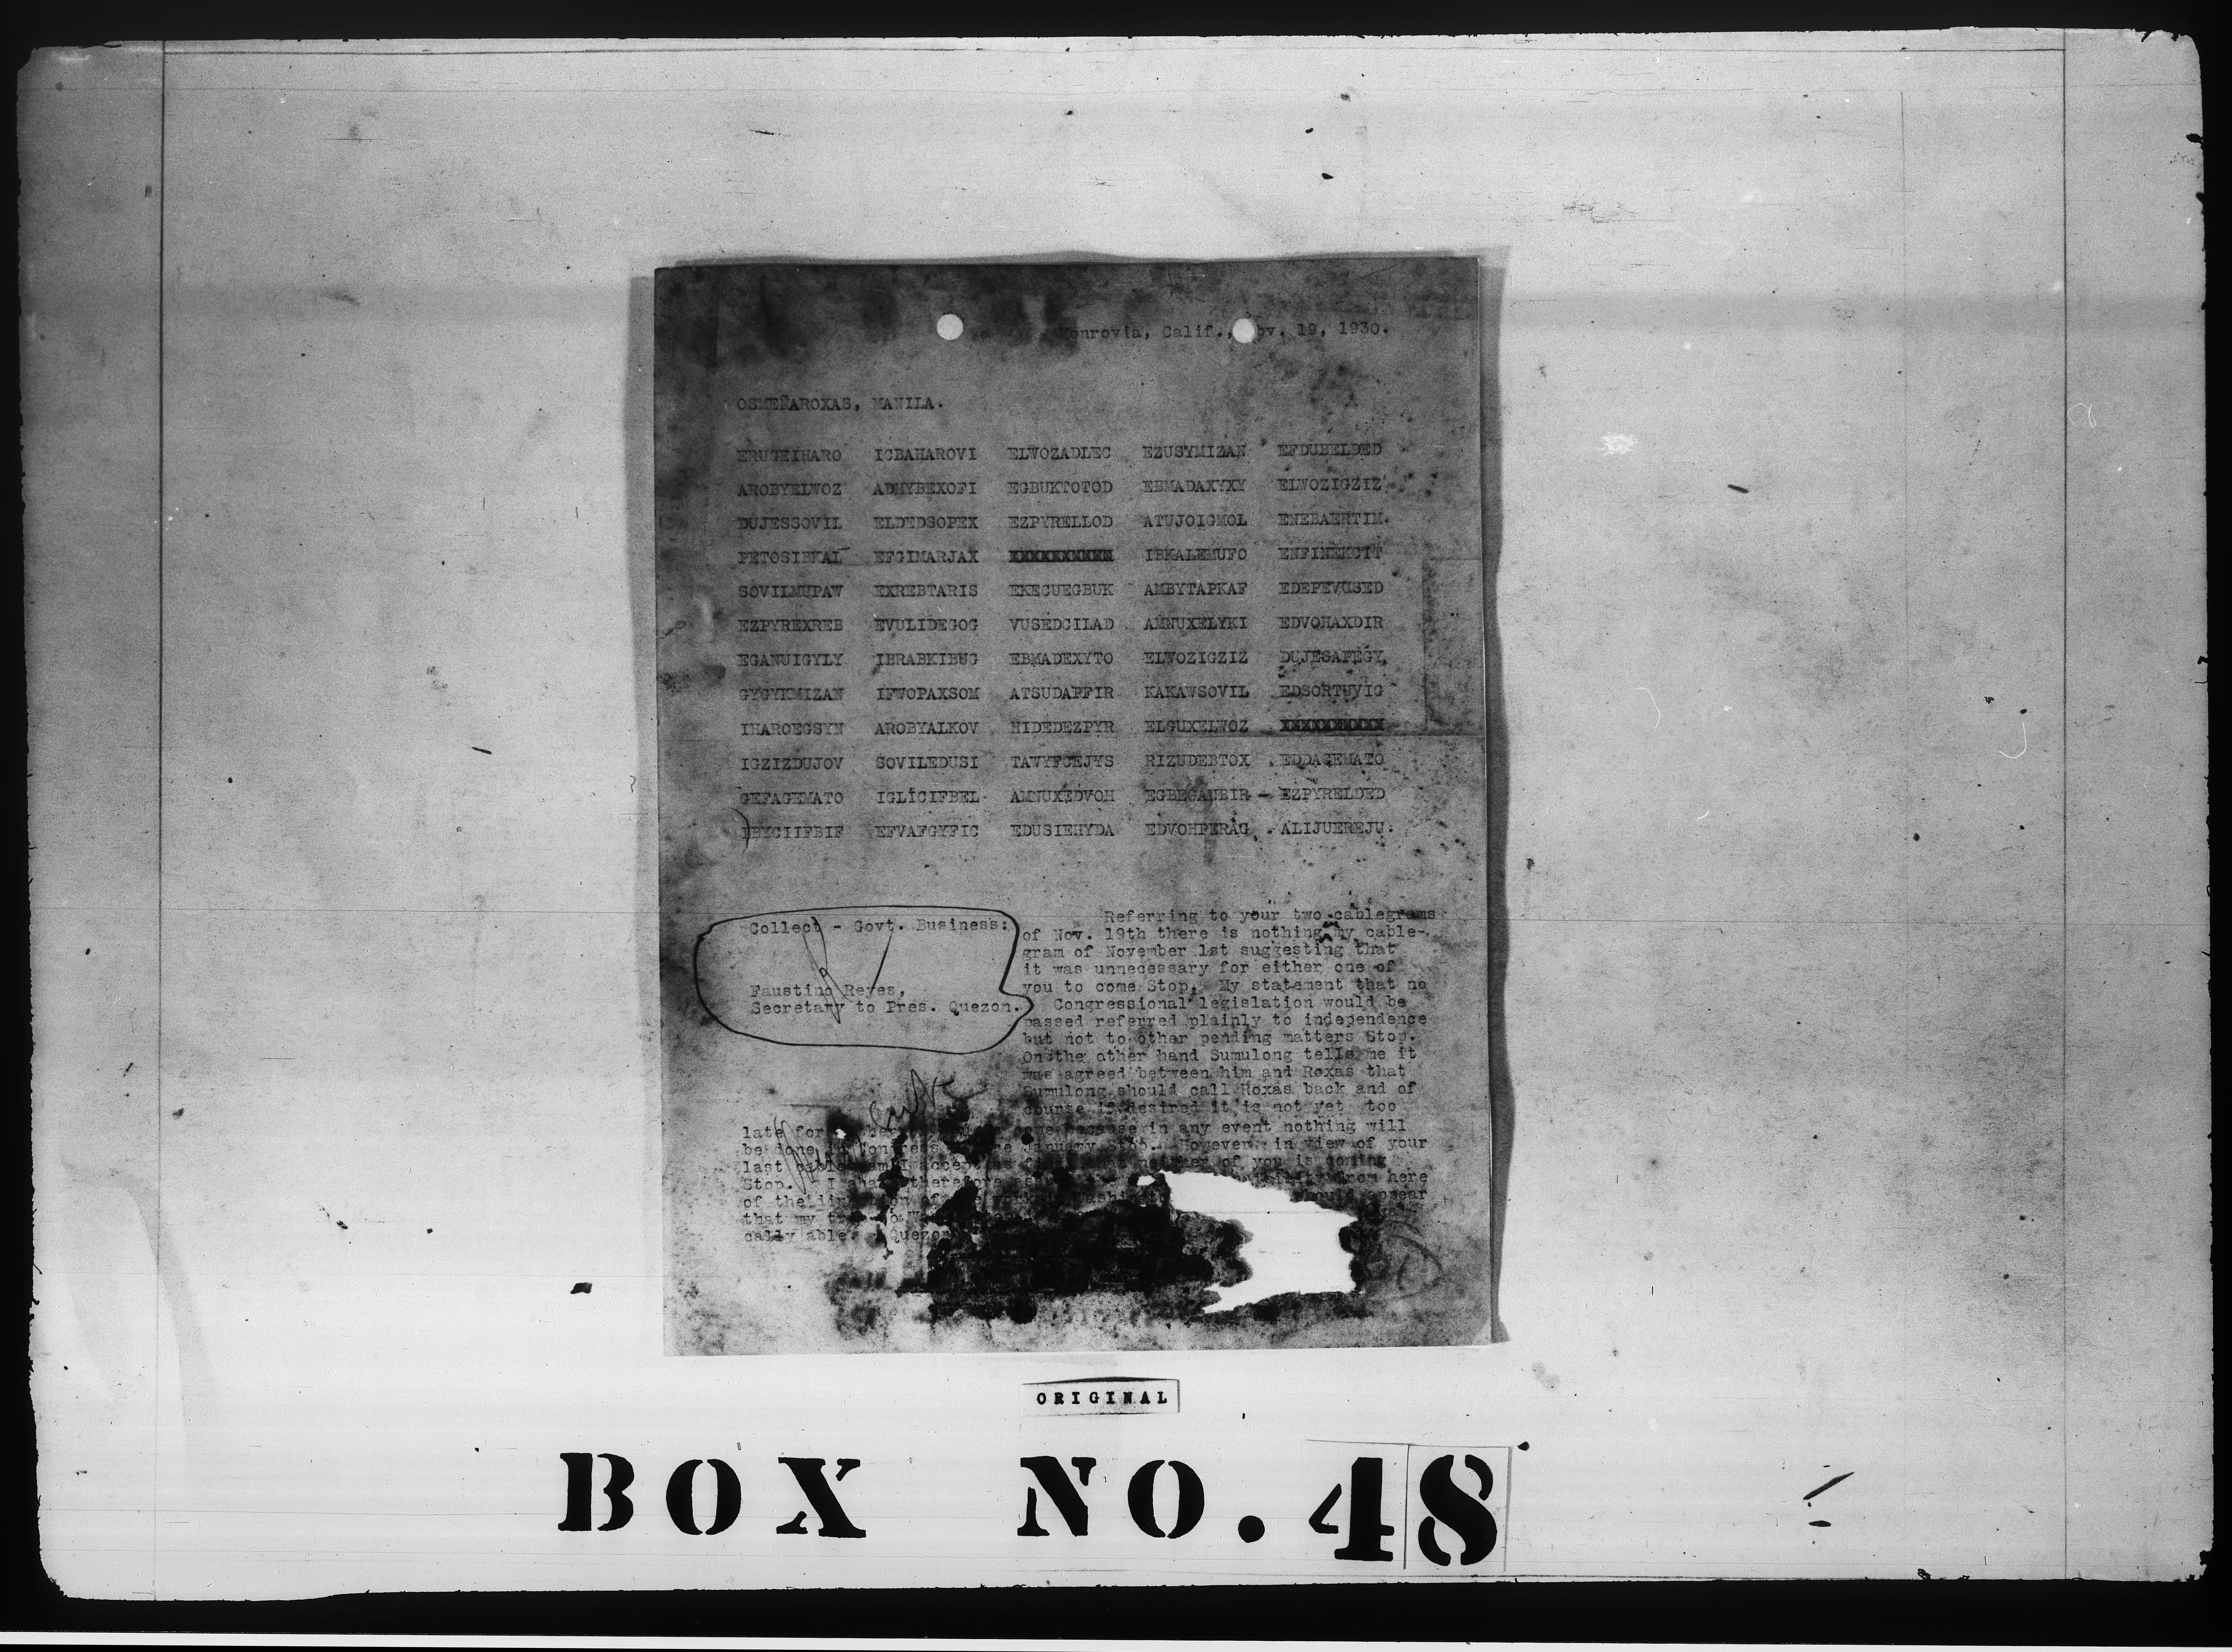 Monrovia, Calif., Nov. 19, 1930.
OSMEÑAROXAS, MANILA.
ERUGEIHARO ICBAHAROVI ELWOZADLEC EZUSYMIZAN EFDUBELDED
AROBYELWOZ ADHYBEXOFI EGBUKTOTOD EBMADAXYXY ELWOZIGZIZ
DUJESSOVIL ELDEDSOPEX EZPYRELLOD ATUJOIGMOL ENEBAERTIM.
PETOSIBKAL EFGIMARJAX XXXXXXXXXX IBKALEMUFO ENFINEKCIT
SOVILMUPAW EXREBTARIS EKECUEGBUK AMBYTAPKAF EDEPEVUSED
EZPYREXREB EVULIDEGOG VUSEDCILAD AMNUXELYKI EDVOHAXDIR
EGANUIGYLY IBRABKIBUG EBMADEXYTO ELWOZIGZIZ DUJESAPEGY
GYGYKMIZAN IFWOPAXSOM ATSUDAPFIR KAKAWSOVIL EDSORTUVIG
IHAROEGSYN AROBYALKOV HIDEDEZPYR ELGUXELWOZ XXXXXXXXXX
IGZIZDUJOV SOVILEDUSI TAVYFCEJYS RIZUDEBTOX EDDAGEMATO
GEFAGEMATO IGLICIFBEL AMNUXEDVOH EGBEGANBIR - EZPYRELDED
EBYCIIFBIF EFVAFGYFIC EDUSIEHYDA EDVOHPERAG ALIJUEREJU.
Collect - Govt. Business:
Faustino Reyes,
Secretary to Pres. Quezon.
Referring to your two cablegrams
of Nov. 19th there is nothing my cable-
gram of November 1st suggesting that
it was unnecessary for either one of
you to come Stop. My statement that no
Congressional legislation would be
passed referred plainly to independence
but not to other pending matters Stop.
On the other hand Sumulong tells me it
was agreed between him and Roxas that
Sumulong should call Roxas back and of
course if desired it is not yet too
late for because in any event nothing will
be done in Congress January Stop. However, in view of your
last I accept of you is coming
Stop. I therefore from here
of the should appear
that my
cally able. Quezon
ORIGINAL
BOX NO. 48